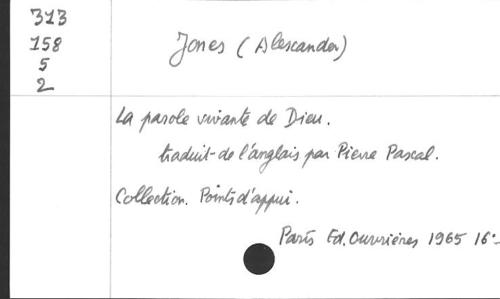 313
158
5
2
Jones (Alexander)
La parole vivante de Dieu.
traduit de l'anglais par Pierre Pascal.
Collection. Points d'appui.
Paris Ed. Ouvrières 1965 16°_